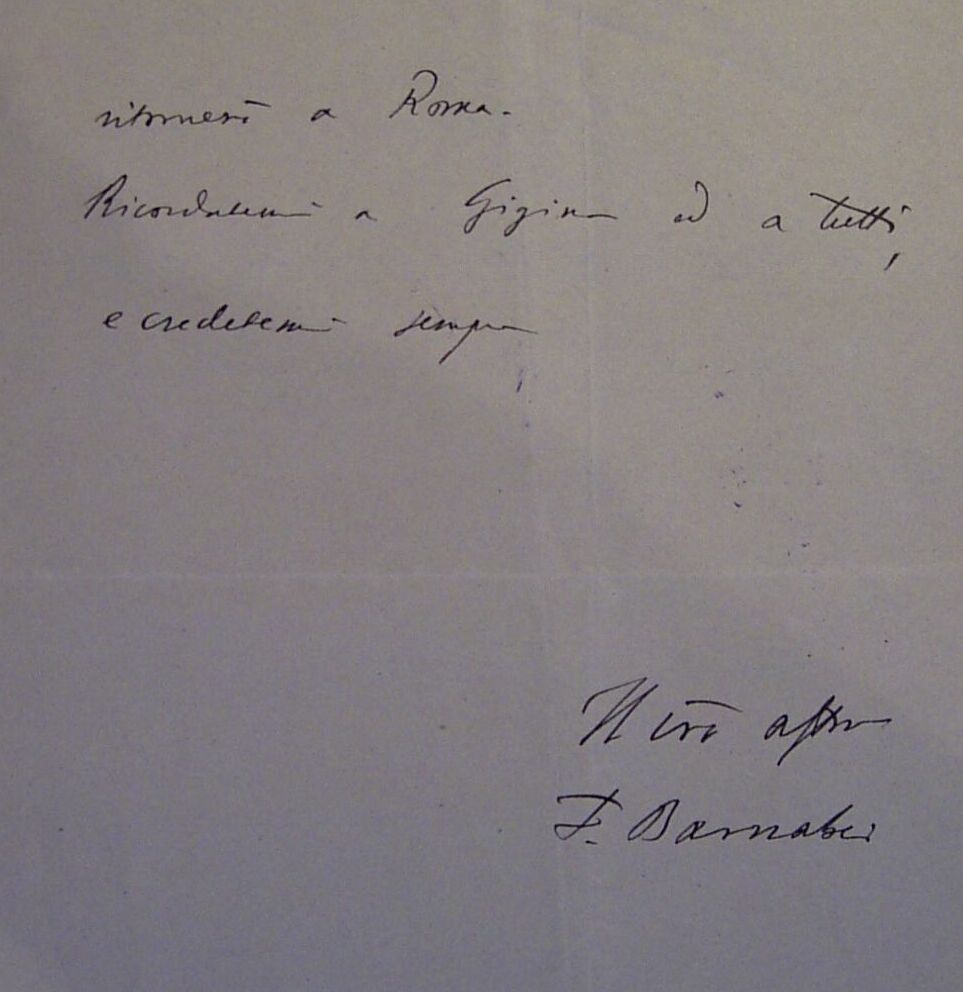 ritornerà a Roma.
Ricordatemi a Gigina ed a tutti,
e credetemi sempre
affmo
F. Barnabei